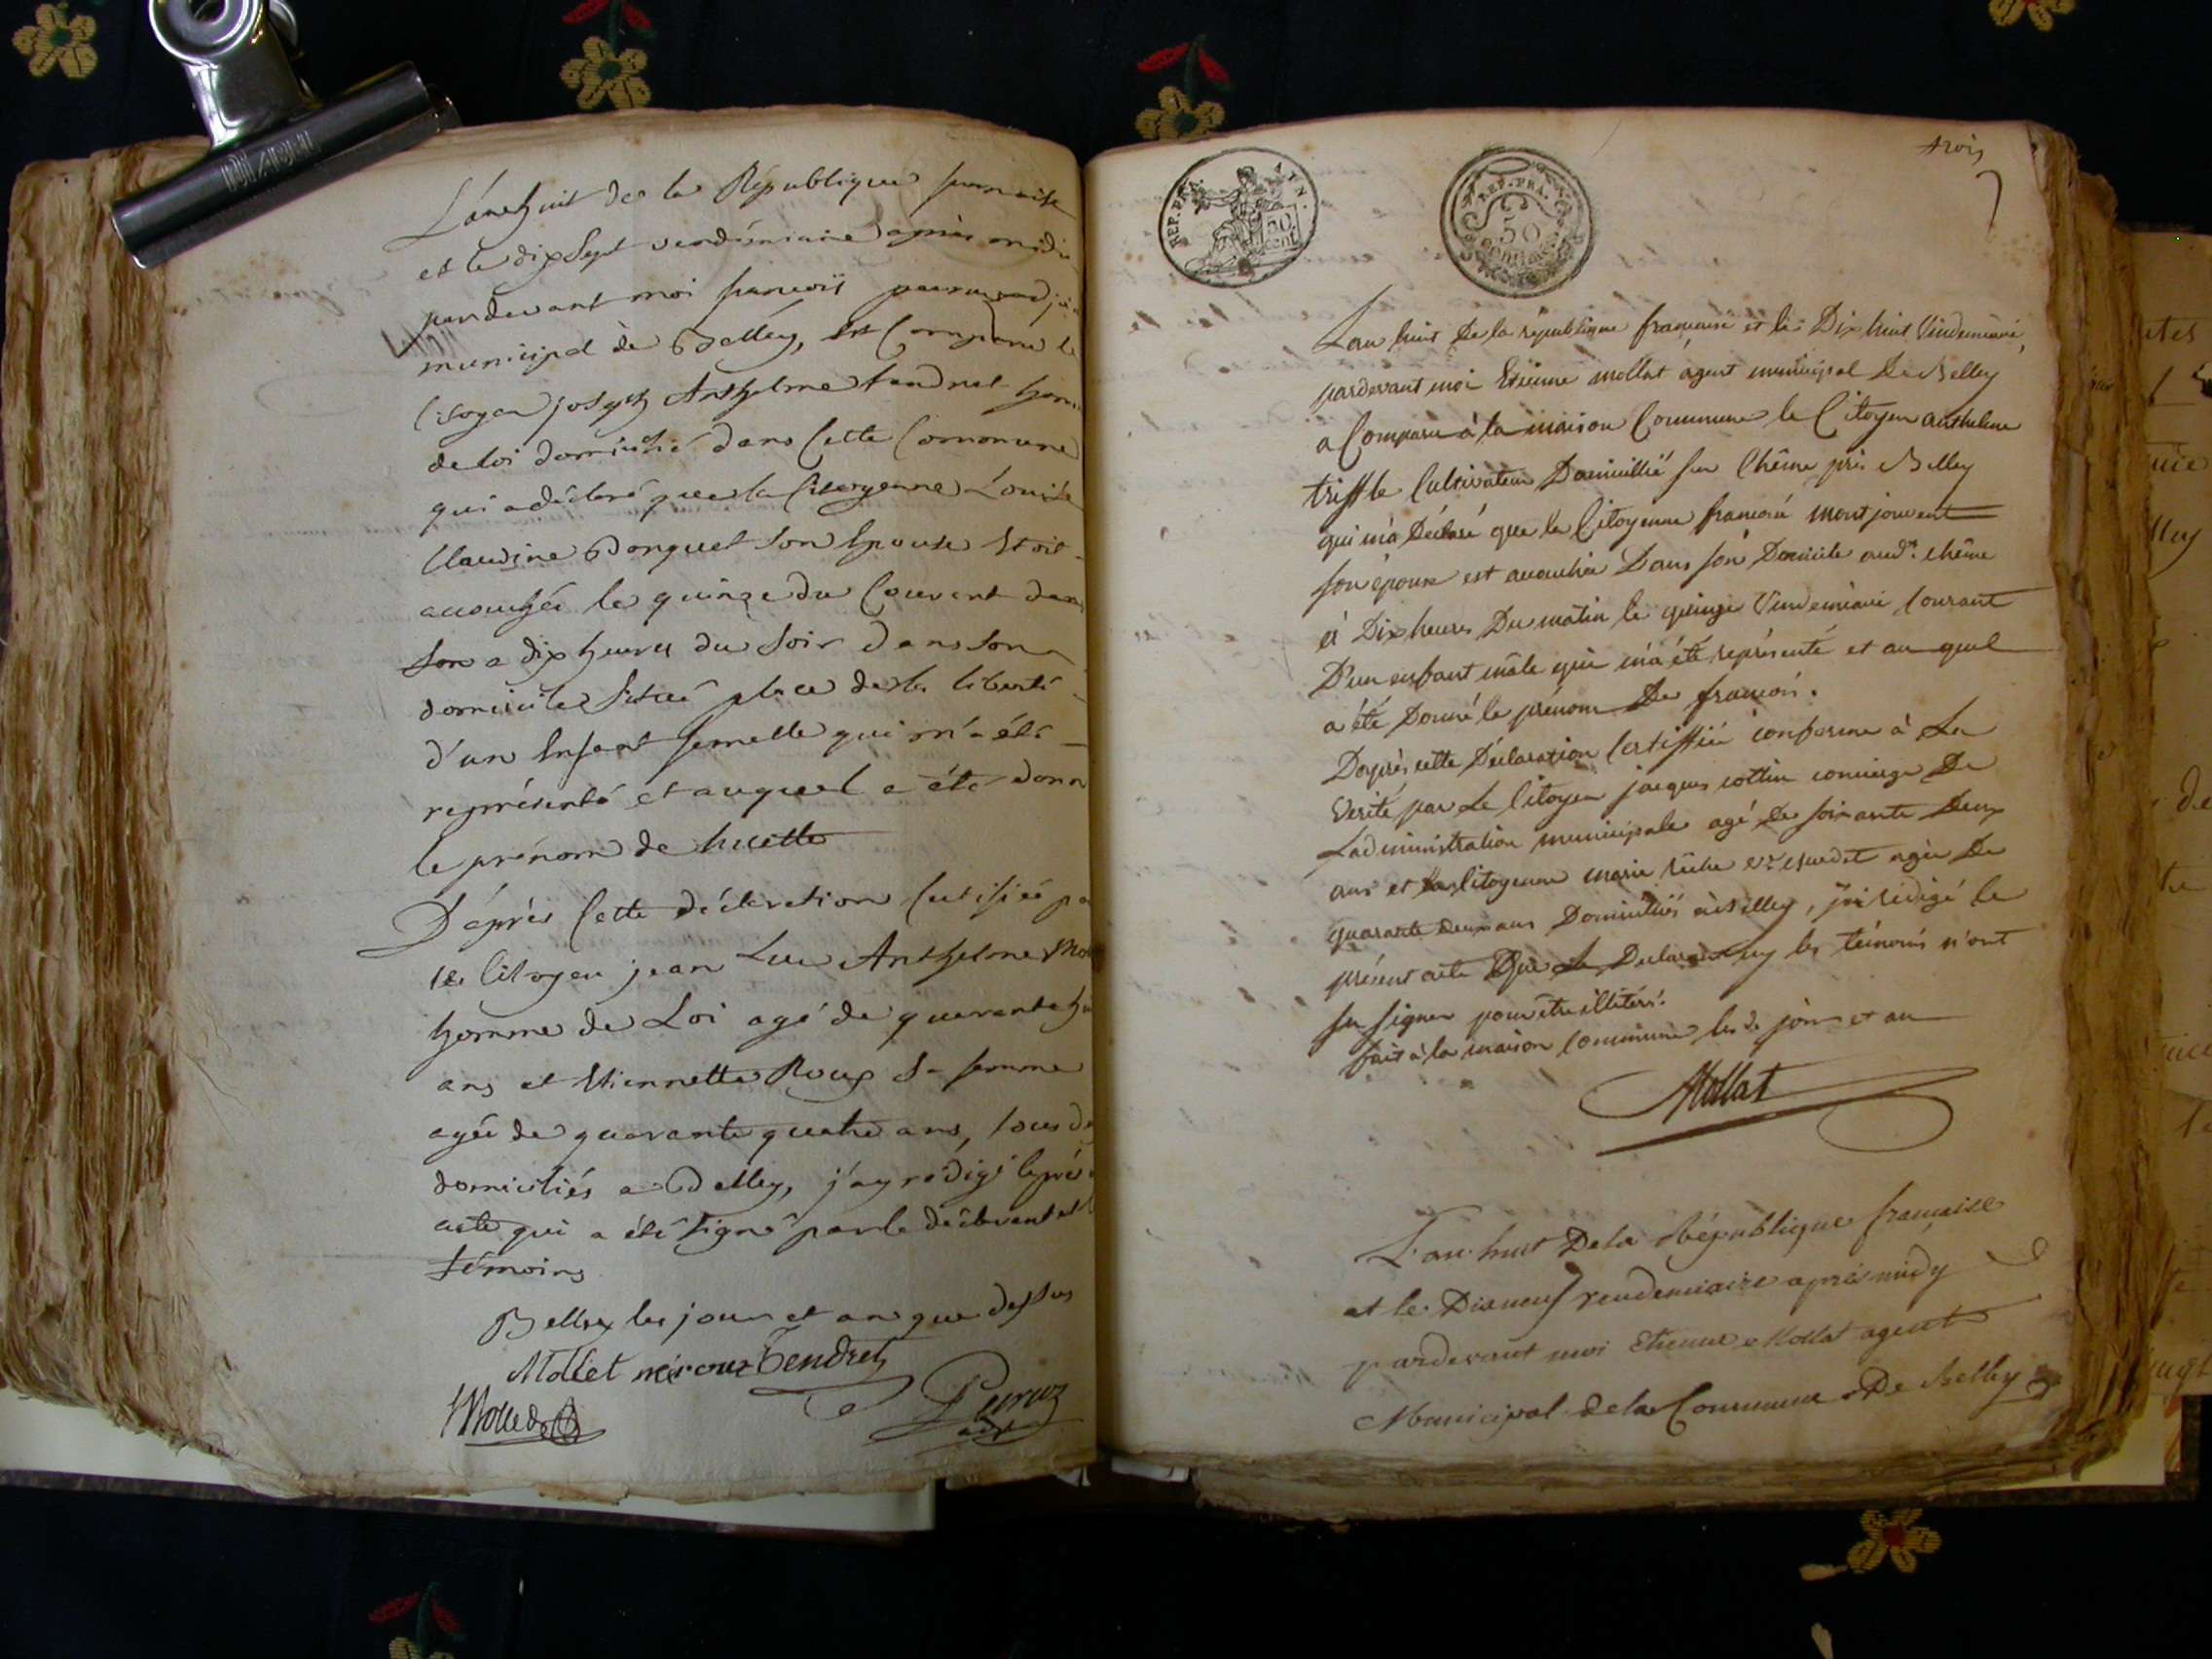 L'an huit de la République francaise
et le dix Sept vendémiaire après midi
pardevant moi francois
municipal de Belley, est Comparu le
Citoyen joseph Anthelme tendret hom
de loi domicilié dans Cette Commune
qui a déclaré que la Citoyenne Louise
Claudine Donguet son Epouse Etoit
accouchée le quinze du Courent dans
son a dix heures du Soir dans son
domicile Situé place de la liberté
d'un Enfant femelle qui m'a été
représenté et auquel a été donn
le prénom de
D'après Cette déclaration Certifiée pa
le Citoyen jean Luc Anthelme
homme de Loi agé de quarante
ans et Etiennette Roux Sa femme
agée de quarante quatre ans, tous
domiciliés a Belley, j'ay rédigé le pré
acte qui a été Signé par le déclarant et
témoins
Belley les jour et an que dessus
Mollet née roux Tendret
Peyruz
trois
REP. FRA. AYN.
50 cent.
REP. FRA.
50
centimes
L'an huit De la republique francaise et le Dix huit Vindemiaire,
pardevant moi Etienne mollat agent municipal De Belley
a Comparu à la maison Commune le Citoyen anthelme
triffle Cultivateur Domicillié sur Chême près Belley
qui m'a Déclaré que la Citoyenne francoise montjouvent
son épouse est accouchée Dans son Domicile aud.t chême
à Dix heures Du matin le quinze Vindemiaire Courant
D'un enfant mâle qui m'a été représenté et au quel
a été Donné le prénom De francois.
D'après cette Déclaration Certiffiée conforme à La
Verité par Le Citoyen jacques cottin concierge De
L'administration municipale agé De soixante Deux
ans et La Citoyenne marie agée De
quarante Deux ans Domicilliés à Belley, j'ai rédigé le
présent acte Que Le Declarant ny les témoins n'ont
su signer pour être illitérés.
fait à la maison commune les de jour et an
Mollat
L'an huit De la République francaise
et le Dixneuf vendemiaire après midy
pardevant moi Etienne Mollat agent
Municipal de la Commune De Belley